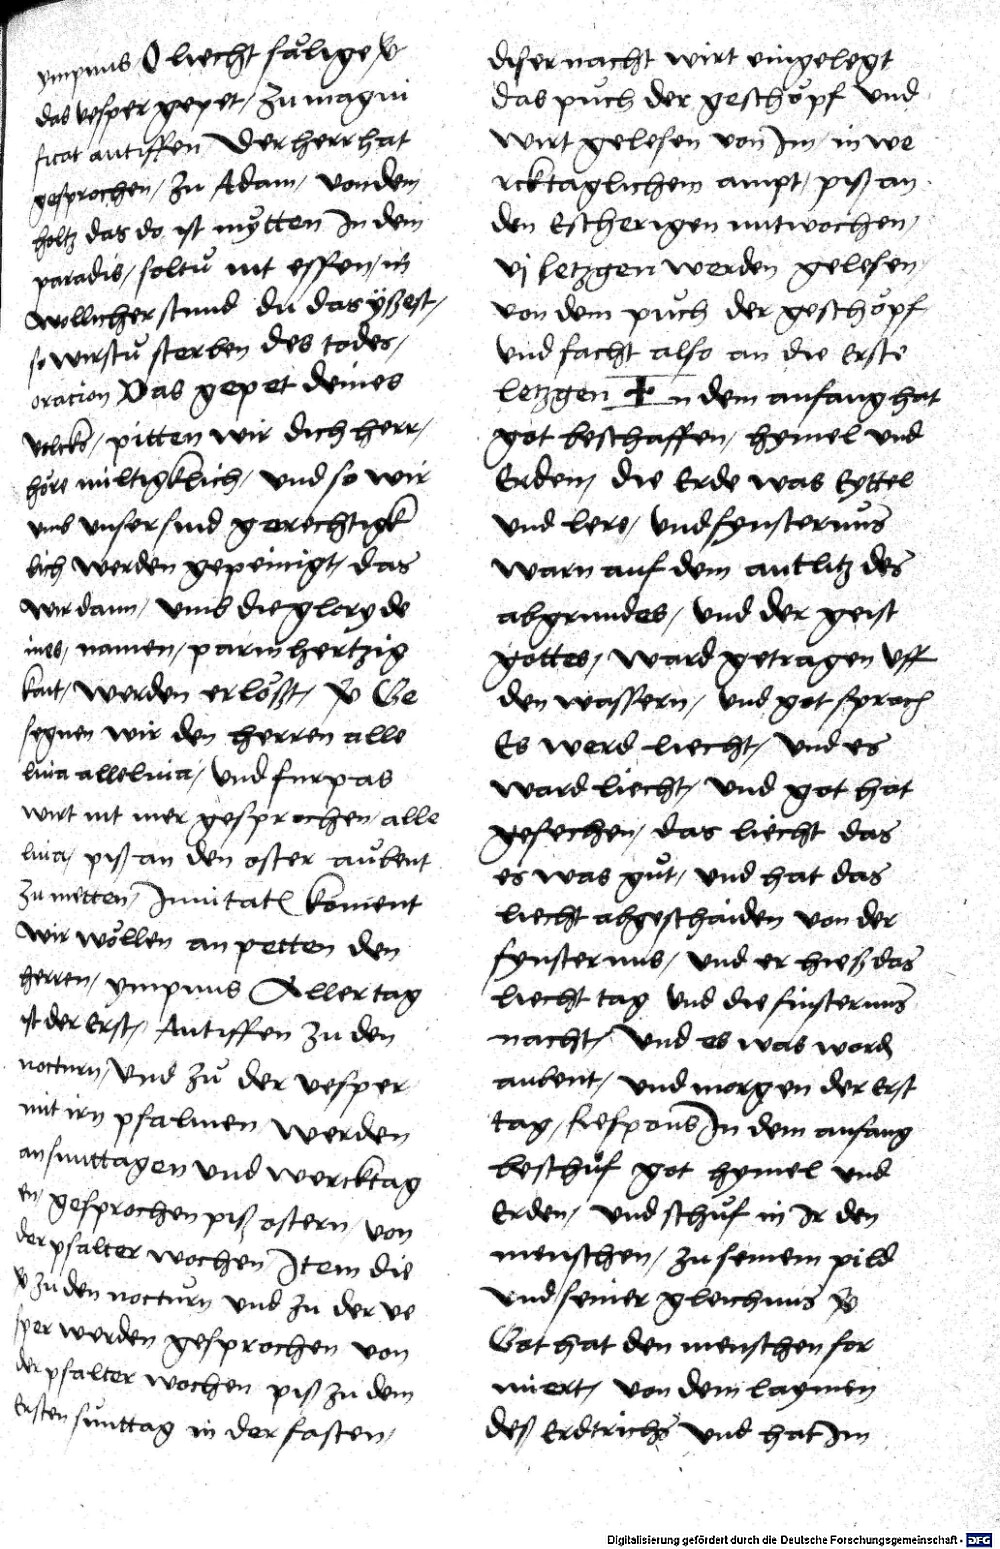 ympnus O liecht sälige ℣
das vesper gepet / Zu magni
ficat antiffen Der herr hat
gesprochen / Zu Adam / von dem
holtz das do ist mÿtten In dem
paradis / soltu nit essen / in
wöllicher stund du das ÿssest /
so wirstu sterben des todes /
oracion Das gepet deines
volcks / pitten wir dich herr /
höre miltigklich / und so wir
umb unser sind gerechtigk
lich werden gepeinigt / das
wir dann / umb die glory de
ines / namen / parmhertzig
kait / werden erlößt / ℣ Ge
segnen wir den herren alle
luia alleluia / und furpas
wirt nit mer gesprochen / alle
luia / piß an den oster aubent
zu metten / Inuitat koment
wir wöllen an petten den
herren / ympnus Aller tag
ist der Erst / Antiffen Zu den
nocturn / und zu der vesper
mit irn psalmen werden
an sunttagen und wercktag
en / gesprochen piß ostern / von
der psalter wochen Item die
℣ zu den nocturn und zu der ve
sper werden gesprochen von
der psalter wochen piß zu dem
Ersten sunttag in der fasten /
diser nacht wirt eingelegt
das puch der geschöpf und
wirt gelesen von Im / in we
rcktaglichem ampt / piß an
den Escherigen mitwochen /
vj letzgen werden gelesen /
von dem puch der geschöpf
und facht also an die Erste
letzgen In dem anfang hat
got beschaffen / hymel und
Erden / die Erde was Eyttel
und lere / und fynsternus
warn auf dem antlitz des
abgrundes / und der geist
gottes / ward getragen uff
den wassern / und got sprach
Es werd liecht / und es
ward liecht / und got hat
gesechen / das liecht das
es was gut / und hat das
liecht abgeschaiden von der
fynsternus / und er hieß das
liecht tag und die finsternus
nacht / und es was word
aubent / und morgen der Erst
tag / Respons In dem anfang
beschuf got hymel und
Erden / und schuf in Ir den
menschen / zu seinem pild
und seiner gleichnus ℣
Got hat den menschen for
miert / von dem laymen
deß Erdtrichs und hat Im
Digitalisierung gefördert durch die Deutsche Forschungsgemeinschaft - DFG